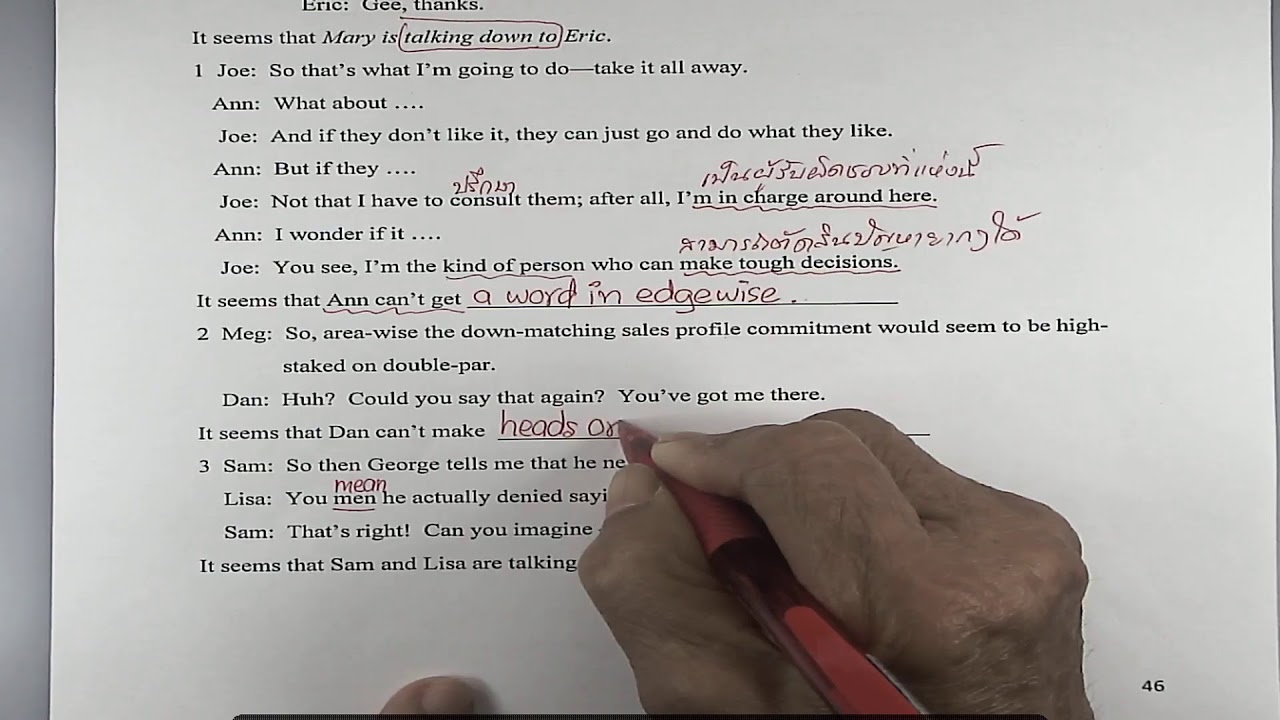 Eric: Gee, thanks.
It seems that Mary is talking down to Eric.
1 Joe: So that's what I'm going to do—take it all away.
Ann: What about ….
Joe: And if they don't like it, they can just go and do what they like.
Ann: But if they ….
ปรึกษา เป็นผู้รับผิดชอบที่แห่งนี้
Joe: Not that I have to consult them; after all, I'm in charge around here.
Ann: I wonder if it ….
สามารถตัดสินปัญหายากๆได้
Joe: You see, I'm the kind of person who can make tough decisions.
It seems that Ann can't get a word in edgewise.
2 Meg: So, area-wise the down-matching sales profile commitment would seem to be high-
staked on double-par.
Dan: Huh? Could you say that again? You've got me there.
It seems that Dan can't make heads or
3 Sam: So then George tells me that he ne
mean
Lisa: You men he actually denied sayi
Sam: That's right! Can you imagine
It seems that Sam and Lisa are talking
46